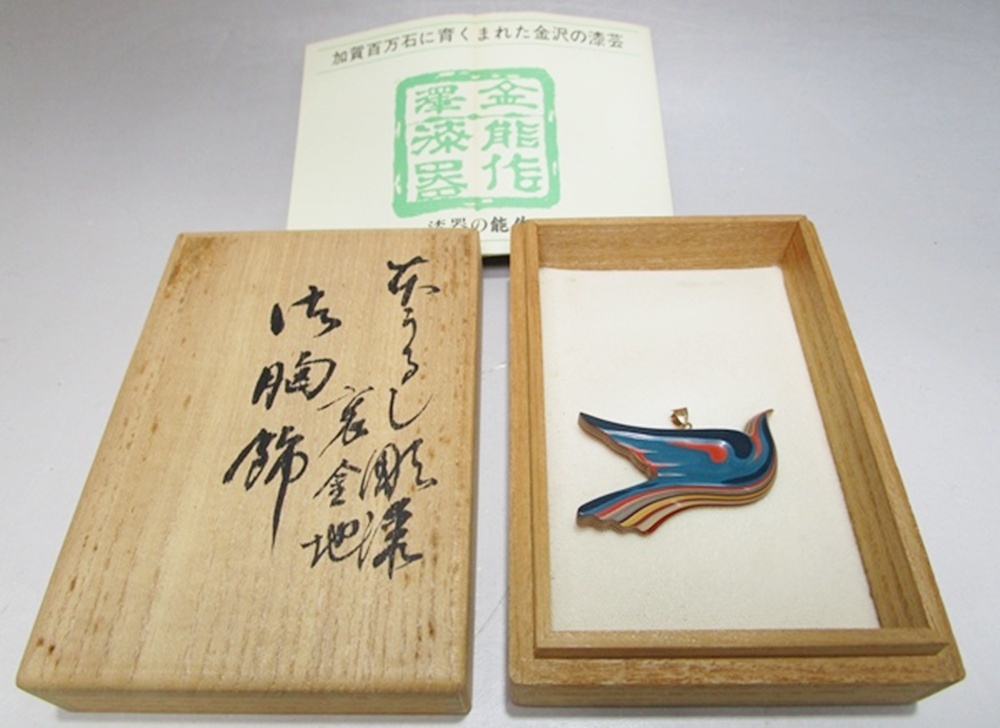 加賀百万石に育くまれた金沢の漆芸
金能作
澤漆器
漆器の能作
本うるし彫漆
裏金地
御胸飾